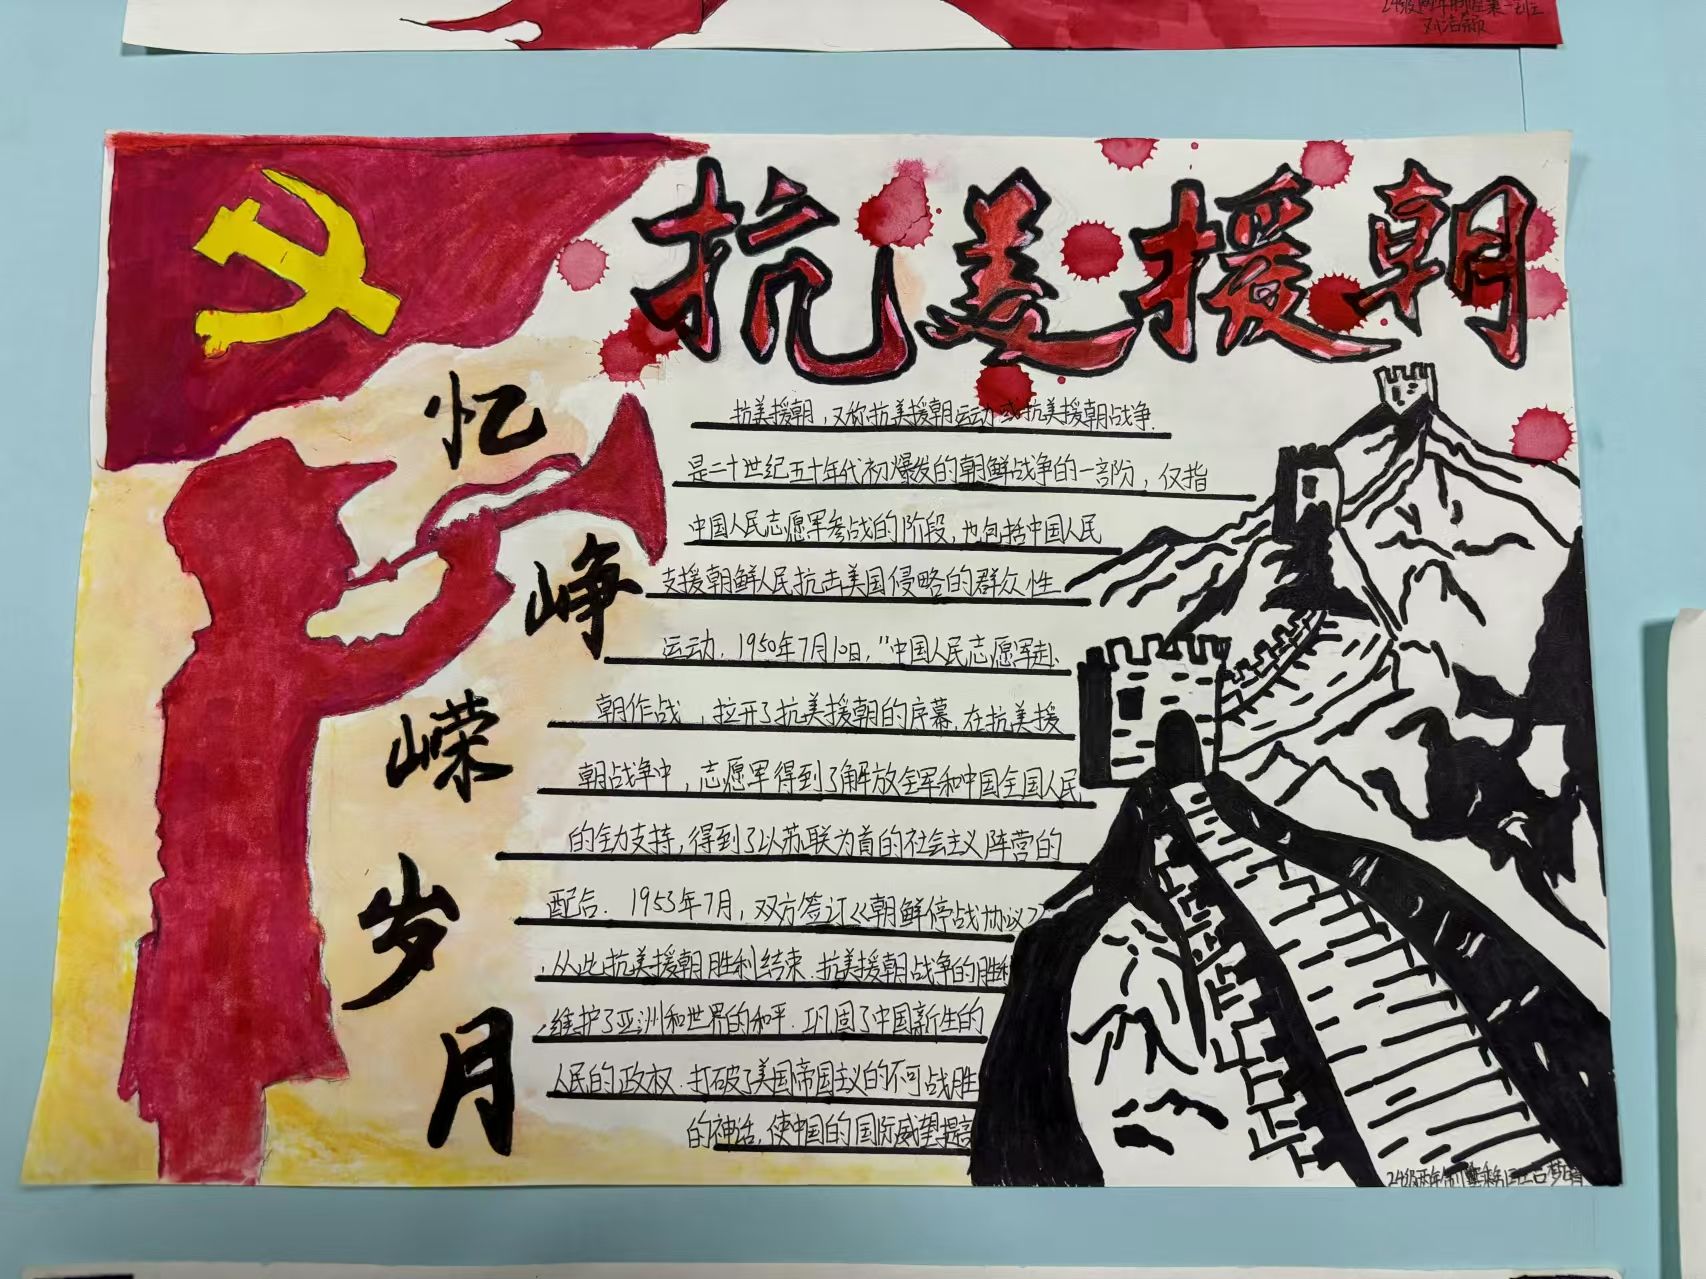 抗美援朝
忆
峥
嵘
岁
月
抗美援朝，又称抗美援朝运动或抗美援朝战争.
是二十世纪五十年代初爆发的朝鲜战争的一部分，仅指
中国人民志愿军参战的阶段，也包括中国人民
支援朝鲜人民抗击美国侵略的群众性
运动. 1950年7月10日，"中国人民志愿军赴
朝作战，拉开了抗美援朝的序幕，在抗美援
朝战争中，志愿军得到了解放全军和中国全国人民
的全力支持，得到了以苏联为首的社会主义阵营的
配合. 1953年7月，双方签订《朝鲜停战协议》
，从此抗美援朝胜利结束. 抗美援朝战争的胜利
，维护了亚洲和世界的和平. 巩固了中国新生的
人民的政权. 打破了美国帝国主义的不可战胜
的神话，使中国的国际威望提高